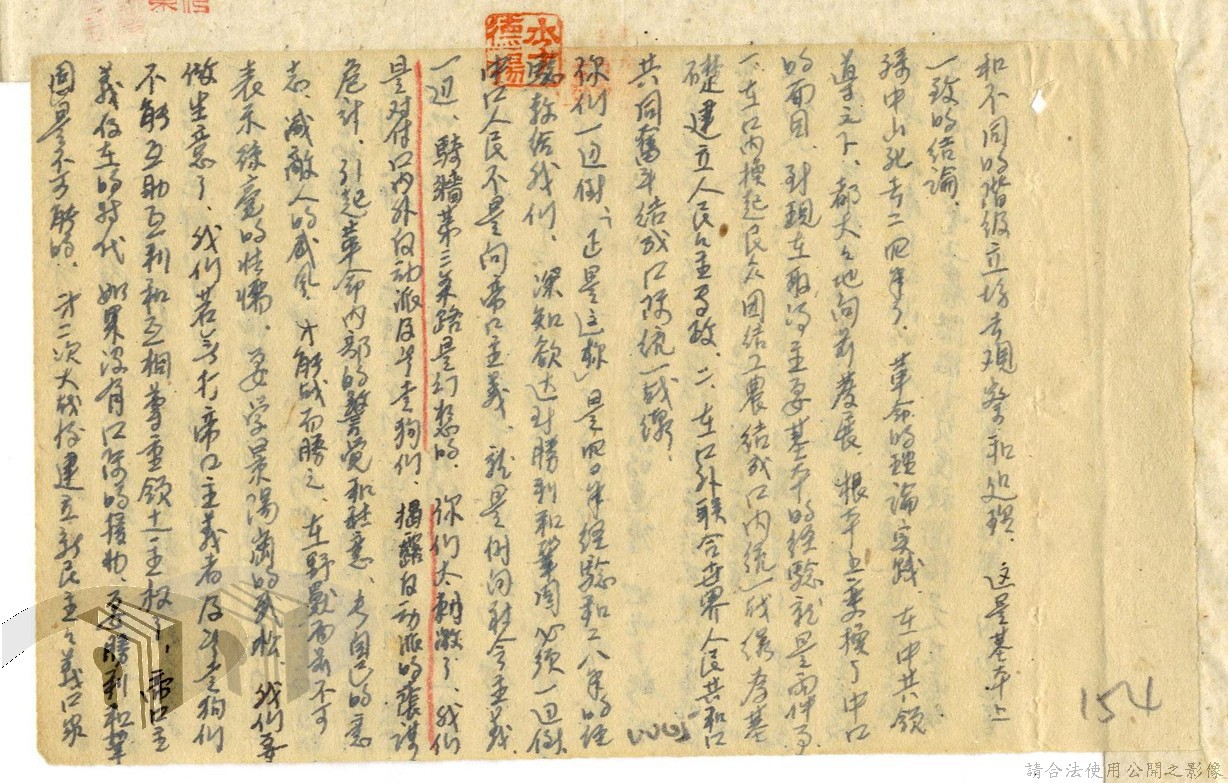 和不同的階級立場去观察和処理、这是基本上
一致的结論、
孫中山死去二四年了、革命的理論实践、在中共领
導之下、都大大地向前发展、根本上变换了中口
的面目、到現在取得主要基本的经驗就是两件事
一、在口内换起民众团结工農结成口内统一战線为基
礎建立人民民主专政、二、在口外联合世界人民共和口
共同奮斗结成口际统一战線、
「你们一边倒、」正是这樣」是四〇年经驗和二八年的经
驗教给我们、深知欲达到勝利和鞏固必须一边倒、
中口人民不是向帝口主義、就是倒向社会主義
一边、騎牆第三条路是幻想的、你们太刺激了、我们
是对付口内外反动派及其走狗们、揭露反动派的張谋
危計、引起革命内部的警觉和註意、大自己的意
志、减敵人的威风、才能战而勝之、在野獸面前不可
表示絲毫的怯懦、要学景陽崗的武松、我们要
做生意了、我们若不打帝口主義者及其走狗们
不能互助互利和互相尊重领土主权了、帝口主
義存在的时代 如果沒有口际的援助、要勝利和鞏
固是不可能的、才二次大战後建立新民主主義口家
154
水木德賜
請合法使用公開之影像